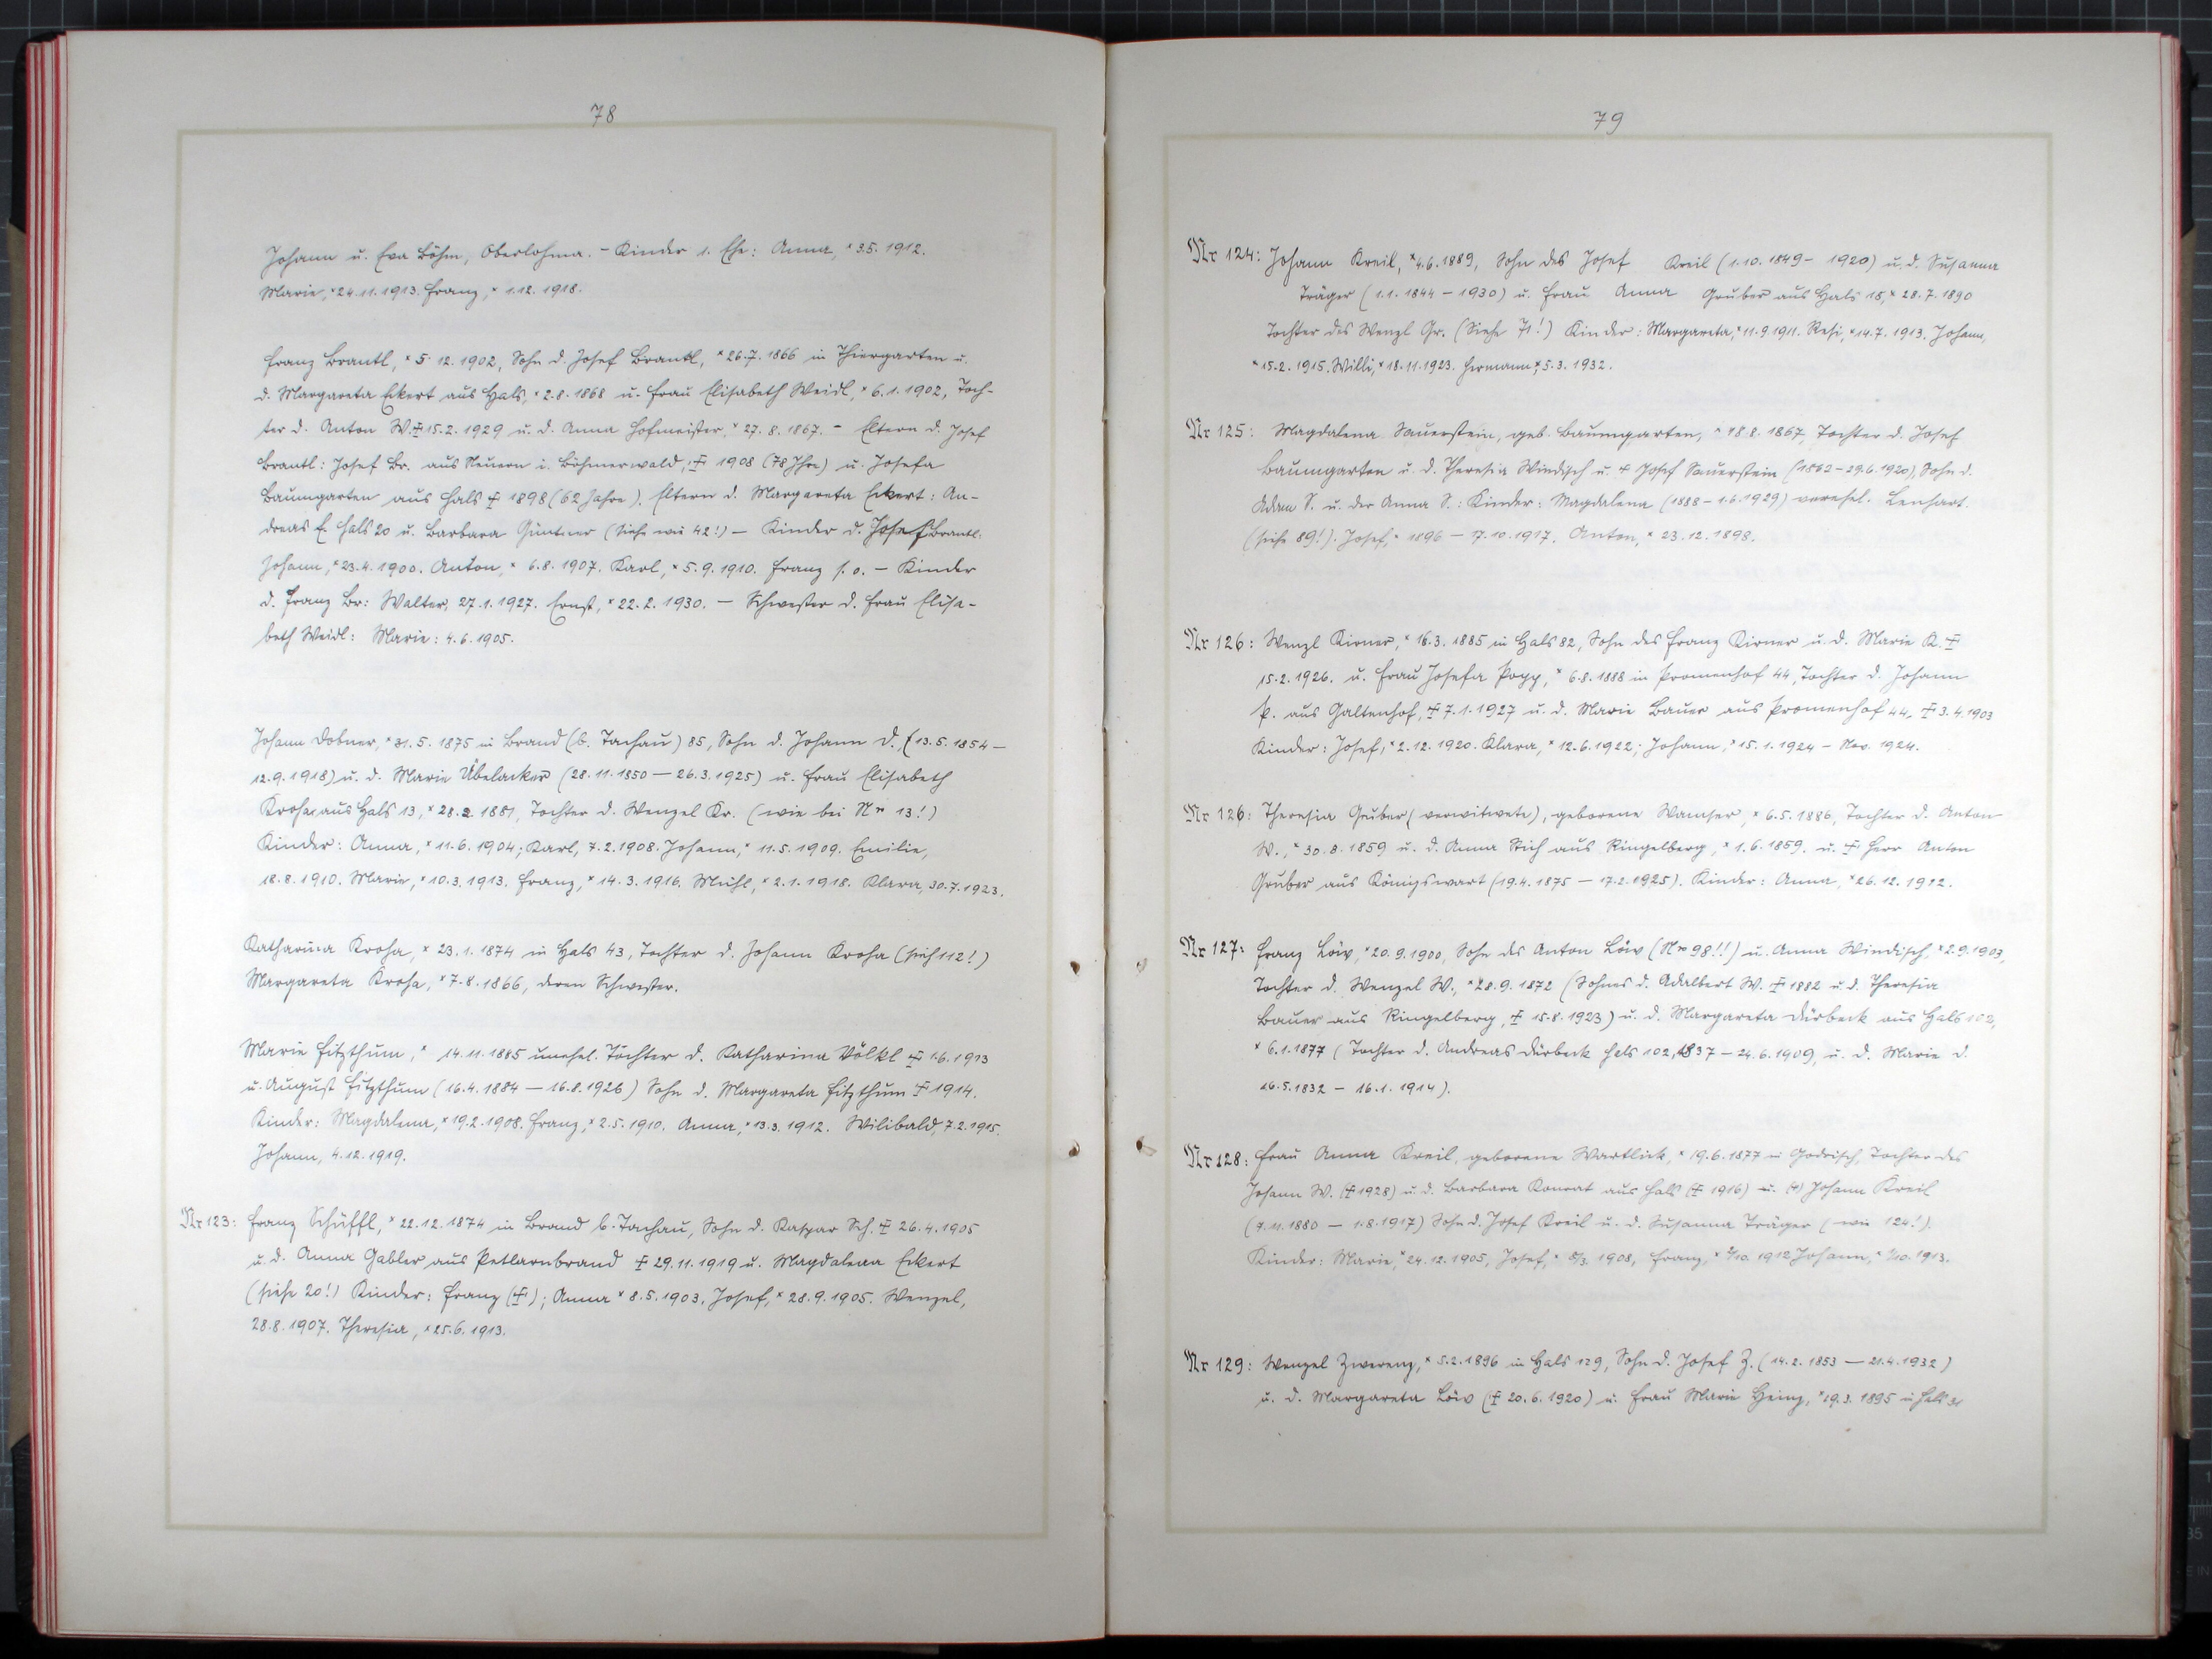 78
Johann u. Eva Böhm, Oberlohma. - Kinder 1. Ehe: Anna, * 3.5. 1912.
Marie, * 24.11.1913. Franz, * 1.12. 1918.
Franz Brantl, * 5. 12. 1902, Sohn d. Josef Brantl, * 26.7. 1866 in Thiergarten u.
d. Margareta Eckert aus Hals, * 2.8. 1868 u. Frau Elisabeth Weidl, * 6.1. 1902, Toch-
ter d. Anton W. ✝ 15.2. 1929 u. d. Anna Hofmeister, * 27. 8. 1867. - Eltern d. Josef
Brantl: Josef Br. aus Neuern i. Böhmerwald, ✝ 1908 (78 Jhre) u. Josefa
Baumgarten aus Hals ✝ 1898 (62 Jahre). Eltern d. Margareta Eckert: An-
dreas E. Hals 20 u. Barbara Güntner (Siehe wie 42!) - Kinder d. Josef Brantl.
Johann, * 23.4. 1900. Anton, * 6.8. 1907. Karl, * 5.9. 1910. Franz s. o. - Kinder
d. Franz Br: Walter, 27.1.1927. Ernst, * 22.2. 1930. - Schwester d. Frau Elisa-
beth Weidl: Marie: 4.6. 1905.
Johann Dobner, * 31.5. 1875 in Brand (b. Tachau) 85, Sohn d. Johann D. (13.5. 1854 -
12.9.1918) u. d. Marie Übelacker (28.11.1850 - 26.3.1925) u. Frau Elisabeth
Kroha, aus Hals 13, * 28.2. 1881, Tochter d. Wenzel Kr. (wie bei Nr 13!)
Kinder: Anna, * 11.6. 1904; Karl, 7.2.1908. Johann, * 11.5. 1909. Emilie,
18.8.1910. Marie, * 10.3. 1913. Franz, * 14.3. 1916. Mühl, * 2.1. 1918. Klara, 30.7.1923.
Katharina Kroha, * 23.1. 1874 in Hals 43, Tochter d. Johann Kroha (sieh 112!)
Margareta Kroha, * 7.8. 1866, deren Schwester.
Marie Fitzthum, * 14.11.1885 unehel. Tochter d. Katharina Völkl ✝ 1.6.1913
u. August Fitzthum (16.4. 1884 - 16.8.1926) Sohn d. Margareta Fitzthum ✝ 1914.
Kinder: Magdalena, * 19.2.1908. Franz, * 2.5. 1910. Anna, * 13.3. 1912. Wilibald, 7.2.1915.
Johann, 4.12.1919.
Nr 123: Franz Schüffl, * 22.12. 1874 in Brand b. Tachau, Sohn d. Kaspar Sch. ✝ 26.4.1905
u. d. Anna Gabler aus Petlarnbrand ✝ 29.11.1919 u. Magdalena Eckert
(siehe 20!) Kinder: Franz (✝); Anna * 8.5. 1903. Josef, * 28.9. 1905. Wenzel,
28.8. 1907. Theresia, * 25.6. 1913.
79
Nr 124: Johann Kreil, * 4.6. 1889, Sohn des Josef Kreil (1.10. 1849 - 1920) u. d. Susanna
Träger (1.1. 1844 - 1930) u. Frau Anna Gruber aus Hals 15, * 28.7. 1890
Tochter des Wenzl Gr. (Siehe 71!) Kinder: Margareta, * 11.9 1911. Resi, * 14.7. 1913. Johann,
* 15.2. 1915. Willi, * 18.11.1923. Hermann, * 5.3. 1932.
Nr 125: Magdalena Sauerstein, geb. Baumgarten, * 18 8. 1867, Tochter d. Josef
Baumgarten u. d. Theresia Windisch u. ✝ Josef Sauerstein (1862 - 29.6.1920), Sohn d.
Adam S. u. der Anna S.: Kinder: Magdalena (1888 - 1.6.1929) verehel. Lenhart.
(siehe 89!). Josef, * 1896 - 17.10.1917. Anton, * 23.12. 1898.
Nr 126: Wenzl Kirner, * 16.3. 1885 in Hals 82, Sohn des Franz Kirner u. d. Marie K. ✝
15.2. 1926. u. Frau Josefa Popp, * 6.8. 1888 in Promenhof 44, Tochter d. Johann
P. aus Galtenhof, ✝ 7.1.1927 u. d. Marie Bauer aus Promenhof 44, ✝ 3.4.1903
Kinder: Josef, * 2.12. 1920. Klara, * 12.6.1922; Johann, * 15.1. 1924 - Nov. 1924.
Nr 126: Theresia Gruber (verwitwete), geborene Wamser, * 6.5. 1886, Tochter d. Anton
W., * 30.8. 1859 u. d. Anna Stich aus Ringelberg, * 1.6.1859. u. ✝ Herr Anton
Gruber aus Königswart (19.4. 1875 - 17.2.1925). Kinder: Anna, * 26.12. 1922.
Nr 127: Franz Löw, * 20.9.1900, Sohn des Anton Löw (Nr 98!!) u. Anna Windisch, * 2.9.1903,
Tochter d. Wenzel W., * 28.9. 1872 (Sohnes d. Adalbert W. ✝ 1882 u. d. Theresia
Bauer aus Ringelberg, ✝ 15.8. 1923) u. d. Margareta Dürbeck aus Hals 102,
* 6.1. 1877 (Tochter d. Andreas Dürbeck Hals 102, 1837 - 24.6.1909, u. d. Marie D.
26.5.1832 - 16.1. 1914).
Nr 128: Frau Anna Kreil, geborene Wartlick, * 19.6. 1877 in Godrisch, Tochter des
Johann W. (✝ 1928) u. d. Barbara Konrat aus Hals (✝ 1916) u. (✝) Johann Kreil
(7.11. 1880 - 1.8.1917) Sohn d. Josef Kreil u. d. Susanna Träger (wie 124!).
Kinder: Marie, * 24.12.1905, Josef, * 8/3. 1908, Franz, * 2/10. 1912 Johann, * 1/10. 1913.
Nr 129: Wenzel Zwerenz, * 5.2. 1896 in Hals 129, Sohn d. Josef Z. (14.2. 1853 - 21.4.1932)
u. d. Margareta Löw (✝ 20.6. 1920) u. Frau Marie Heinz, * 19.3. 1895 in Hals 31